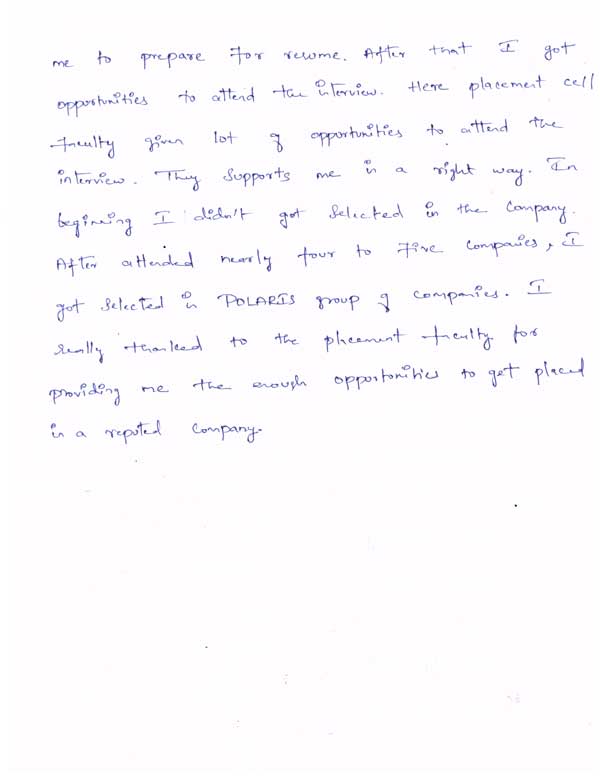 me to prepare for resume. After that I got
opportunities to attend the interview. Here placement cell
faculty given lot of opportunities to attend the
interview. They supports me in a right way. In
beginning I didn't got selected in the company.
After attended nearly four to five companies, I
got selected in POLARIS group of companies. I
really thanked to the placement faculty for
providing me the enough opportonities to get placed
in a reputed company.